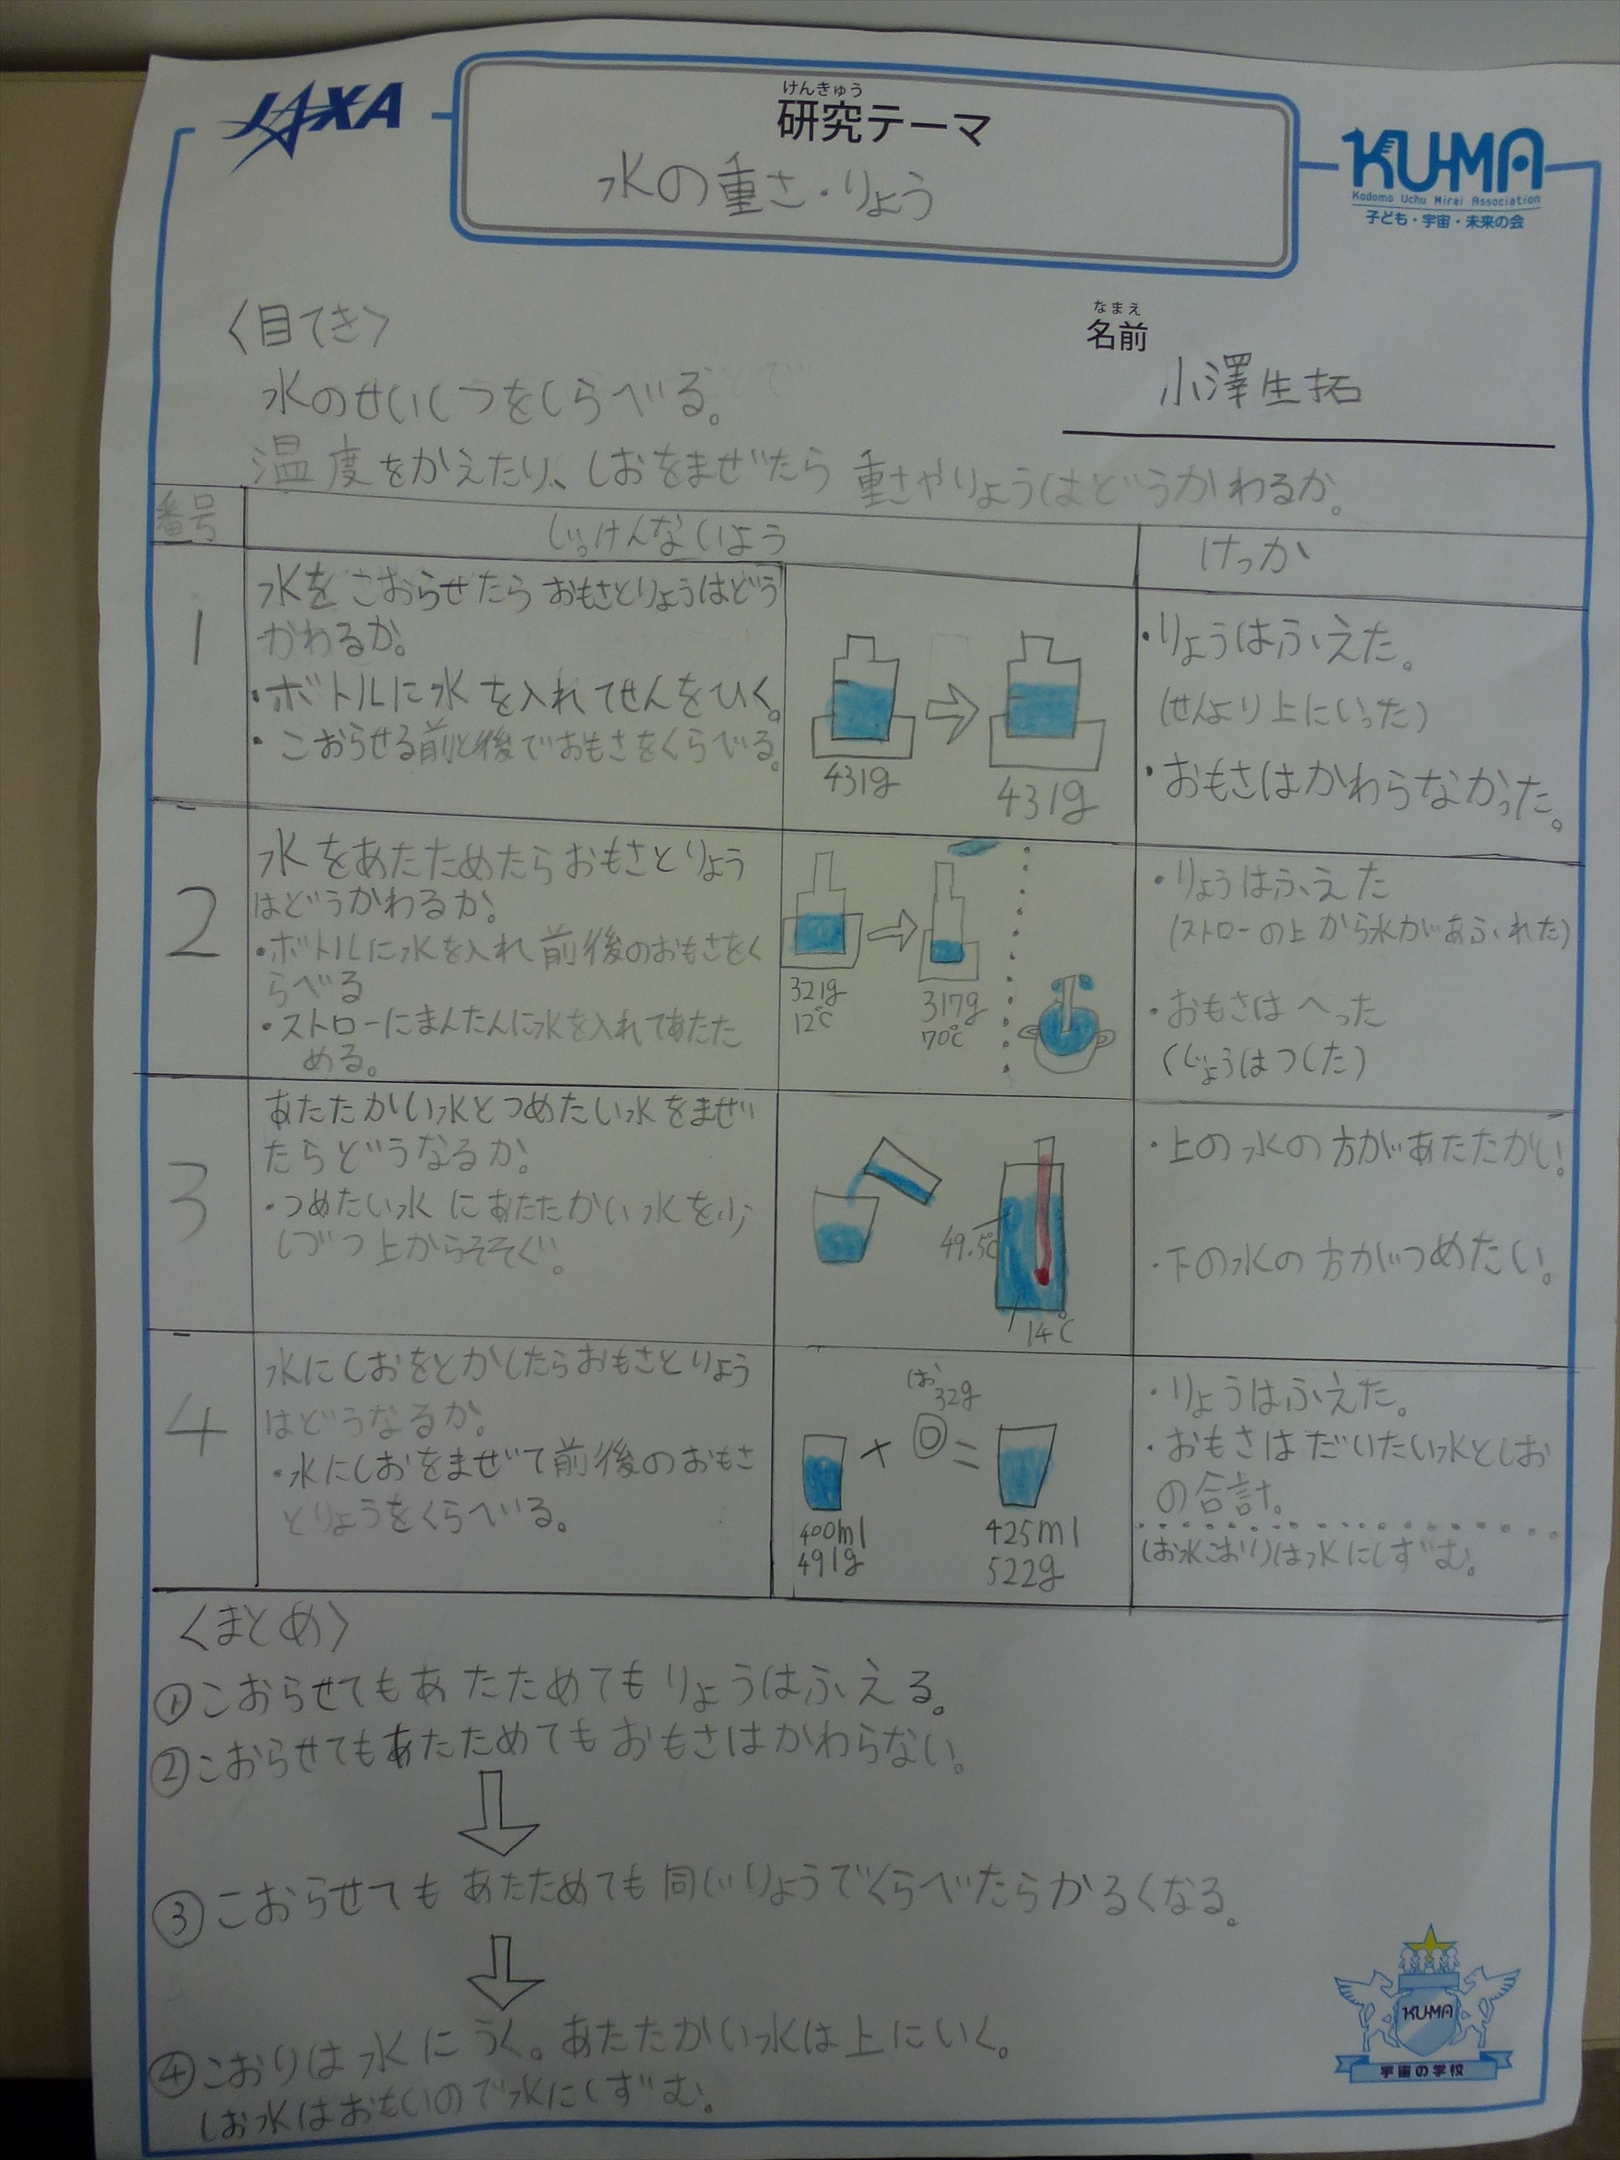 JAXA
けんきゅう
研究テーマ
水の重さ・りょう
KU-MA
Kodomo Uchu Mirai Association
子ども・宇宙・未来の会
〈目てき〉
なまえ
名前
小澤生拓
水のせいしつをしらべる。
温度をかえたり、しおをまぜたら重さやりょうはどうかわるか。
番号
じっけんないよう
けっか
1
水をこおらせたらおもさとりょうはどう
かわるか。
・ボトルに水を入れてせんをひく。
・こおらせる前と後でおもさをくらべる。
431g
431g
・りょうはふえた。
(せんより上にいった)
・おもさはかわらなかった。
2
水をあたためたらおもさとりょう
はどうかわるか。
・ボトルに水を入れ前後のおもさをく
らべる
・ストローにまんたんに水を入れてあたた
める。
321g
12℃
317g
70℃
・りょうはふえた
(ストローの上から水があふれた)
・おもさはへった
(じょうはつした)
3
あたたかい水とつめたい水をまぜ
たらどうなるか。
・つめたい水にあたたかい水を少
しづつ上からそそぐ。
49.5℃
14℃
・上の水の方があたたかい。
・下の水の方がつめたい。
4
水にしおをとかしたらおもさとりょう
はどうなるか。
・水にしおをまぜて前後のおもさ
とりょうをくらべる。
しお
32g
+
=
400ml
491g
425ml
522g
・りょうはふえた。
・おもさはだいたい水としお
の合計。
(しお水こおり)は水にしずむ。
〈まとめ〉
①こおらせてもあたためてもりょうはふえる。
②こおらせてもあたためてもおもさはかわらない。
③こおらせてもあたためても同じりょうでくらべたらかるくなる。
④こおりは水にうく。あたたかい水は上にいく。
しお水はおもいので水にしずむ。
KU-MA
宇宙の学校